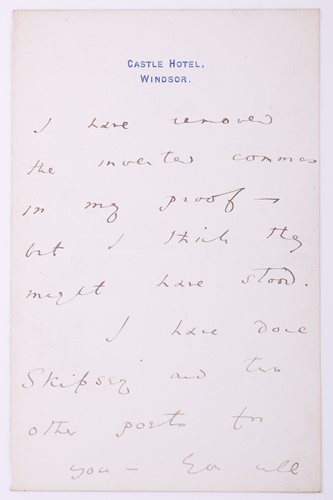 CASTLE HOTEL,
WINDSOR.
I have removed
the inverted commas
in my proof —
but I think they
might have stood.
I have done
Skipsey and two
other poets for
you — You will